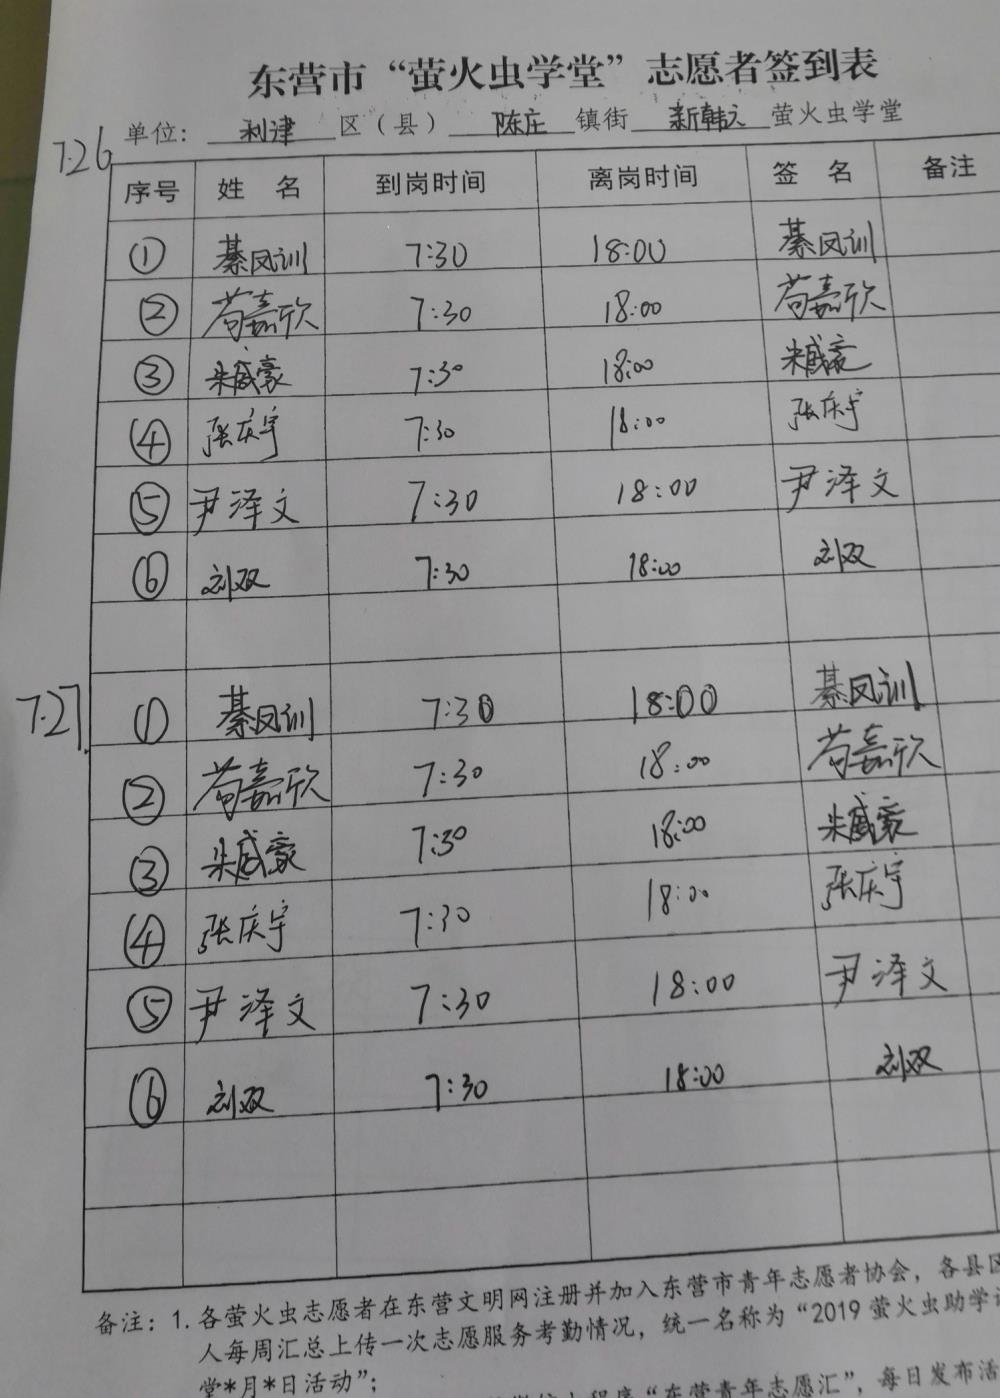 东营市“萤火虫学堂”志愿者签到表
单位：利津区（县）陈庄镇街新韩元萤火虫学堂
7.26
序号 姓名 到岗时间 离岗时间 签名 备注
① 綦凤训 7:30 18:00 綦凤训
② 苟嘉欣 7:30 18:00 苟嘉欣
③ 朱威豪 7:30 18:00 朱威豪
④ 张庆宇 7:30 18:00 张庆宇
⑤ 尹泽文 7:30 18:00 尹泽文
⑥ 刘双 7:30 18:00 刘双
7.27
① 綦凤训 7:30 18:00 綦凤训
② 苟嘉欣 7:30 18:00 苟嘉欣
③ 朱威豪 7:30 18:00 朱威豪
④ 张庆宇 7:30 18:00 张庆宇
⑤ 尹泽文 7:30 18:00 尹泽文
⑥ 刘双 7:30 18:00 刘双
备注：1.各萤火虫志愿者在东营文明网注册并加入东营市青年志愿者协会，各县区
人每周汇总上传一次志愿服务考勤情况，统一名称为“2019萤火虫助学
堂*月*日活动”；
小程序“东营青年志愿汇”，每日发布活